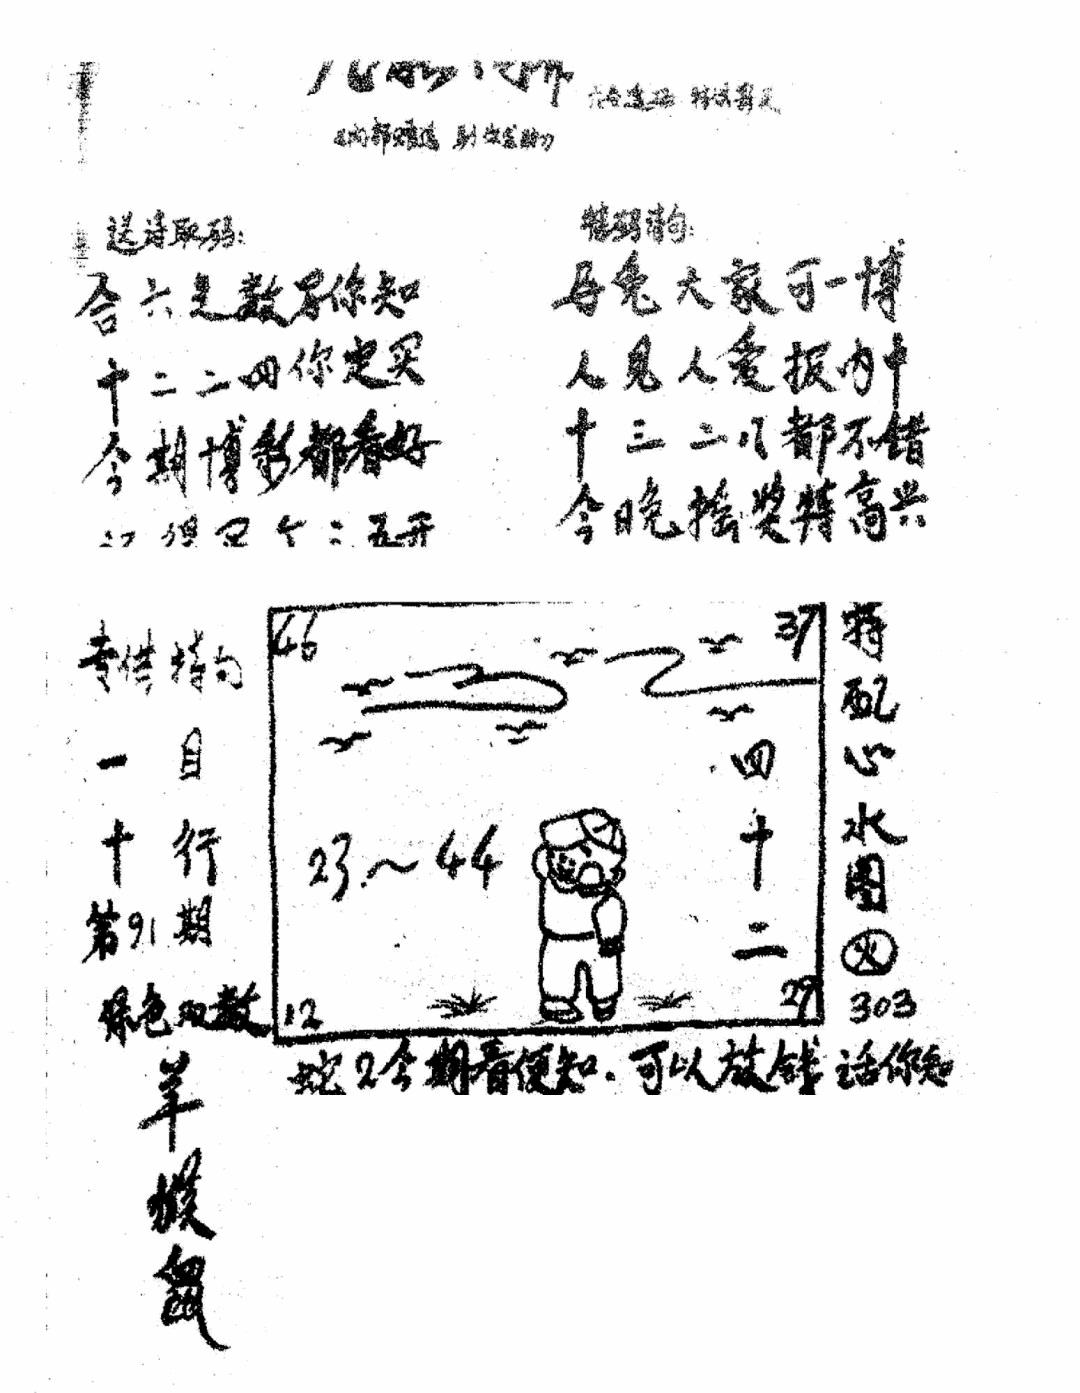 送诗取码:
合六是数字你知
十二二四你定买
今期博彩都看好
二五开
特码诗句:
兔大家可一博
人见人爱报内中
十三二八都不错
今晚搅奖特高兴
专供特句
一目
十行
第91期
绿色双数
羊
猴
鼠
46
37
23.~44
四十二
12
29
特配心水图
火
303
蛇2今期看便知.可以放钱话你知